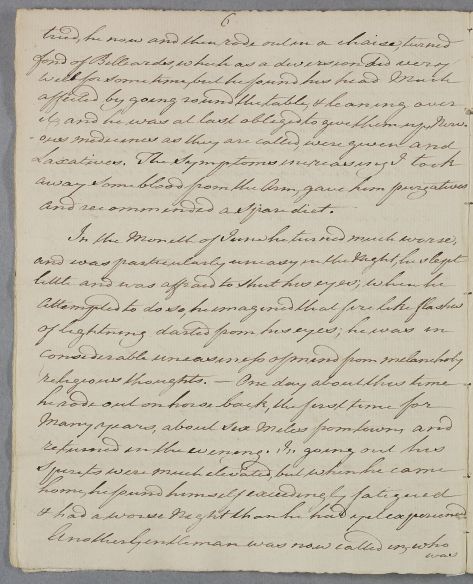 6
tried, he now and then rode out in a chaise, turned
fond of Billiards, which as a diversion did very
well for some time, but he found his head Much
affected by going round the table, & leaning over
it, and he was at last obliged to give them up, Nerv-
ous medicines as they are called were given and
Laxatives. The Symptoms increasing I took
away some blood from the Arm, gave him purgatives
and recommended a spare diet.
In the Month of June he turned much worse,
and was particularly uneasy in the Night, he slept
little and was affraid to shut his eyes; when he
attempted to do so he imagined that fire like flashes
of lightning darted from his eyes; he was in
considerable uneasiness of mind from melancholy
religious thoughts. — One day about this time
he rode out on horse back, the first time for
Many years, about Six Miles from town, and
returned in the evening. In going out his
Spirits were much elevated, but when he came
home, he found himself exceedingly fatigued
& had a worse Night than he had yet experienced
Another Gentleman was now called in, who
was